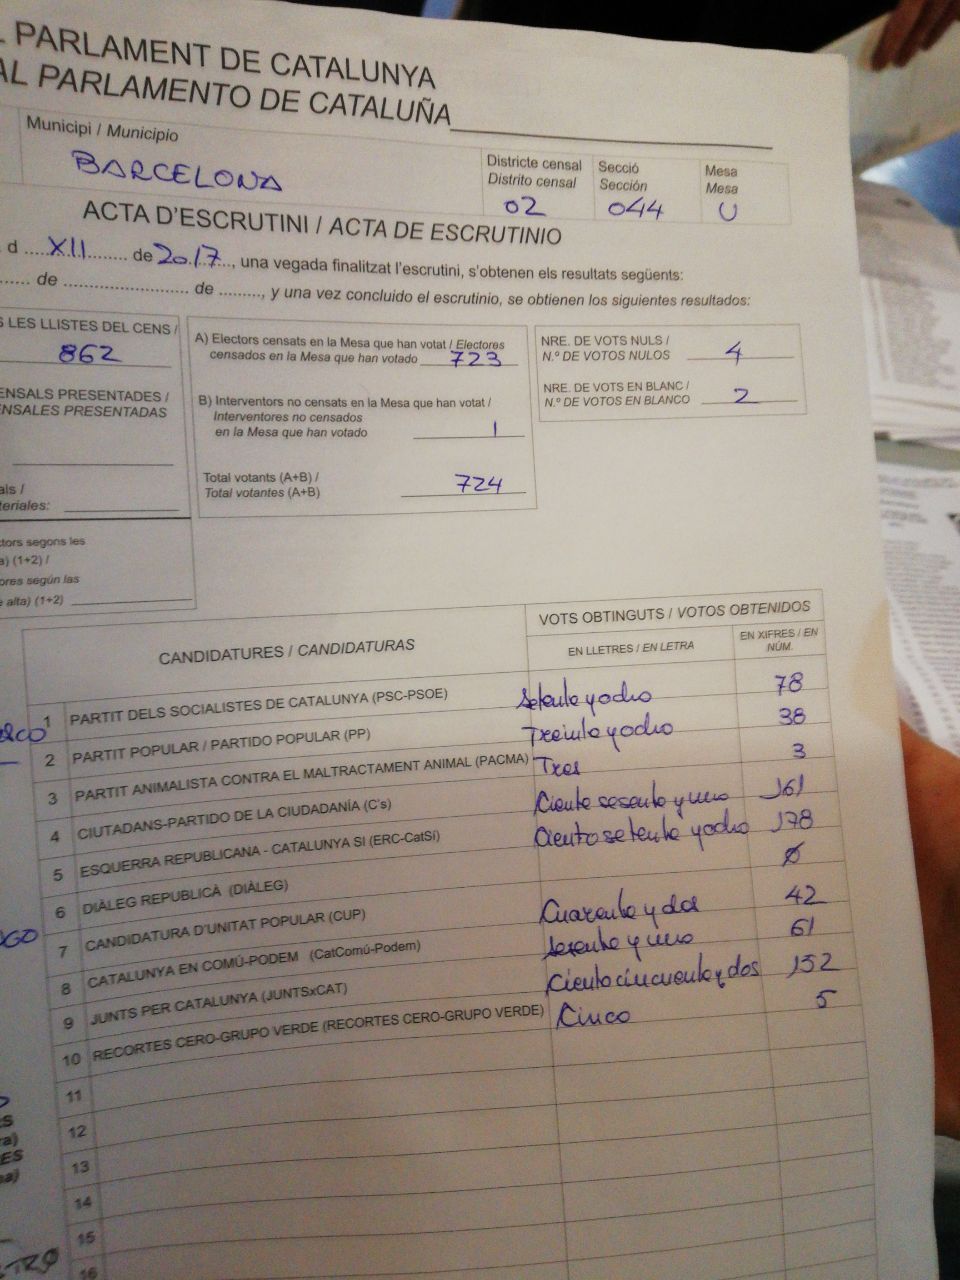 L PARLAMENT DE CATALUNYA
AL PARLAMENTO DE CATALUÑA
Municipi / Municipio
BARCELONA
Districte censal
Distrito censal
02
Secció
Sección
044
Mesa
Mesa
U
ACTA D'ESCRUTINI / ACTA DE ESCRUTINIO
d ....XII........ de 2017..., una vegada finalitzat l'escrutini, s'obtenen els resultats següents:
...... de ........................... de ........., y una vez concluido el escrutinio, se obtienen los siguientes resultados:
S LES LLISTES DEL CENS /
862
ENSALS PRESENTADES /
ENSALES PRESENTADAS
als /
teriales:
tors segons les
a) (1+2) /
ores según las
e alta) (1+2)
A) Electors censats en la Mesa que han votat / Electores
censados en la Mesa que han votado 723
B) Interventors no censats en la Mesa que han votat /
Interventores no censados
en la Mesa que han votado 1
Total votants (A+B) /
Total votantes (A+B) 724
NRE. DE VOTS NULS /
N.º DE VOTOS NULOS 4
NRE. DE VOTS EN BLANC /
N.º DE VOTOS EN BLANCO 2
CANDIDATURES / CANDIDATURAS
VOTS OBTINGUTS / VOTOS OBTENIDOS
EN LLETRES / EN LETRA
EN XIFRES / EN
NÚM.
1 PARTIT DELS SOCIALISTES DE CATALUNYA (PSC-PSOE) Setenta y ocho 78
2 PARTIT POPULAR / PARTIDO POPULAR (PP) Treinta y ocho 38
3 PARTIT ANIMALISTA CONTRA EL MALTRACTAMENT ANIMAL (PACMA) Tres 3
4 CIUTADANS-PARTIDO DE LA CIUDADANÍA (C's) Ciento sesenta y uno 161
5 ESQUERRA REPUBLICANA - CATALUNYA SI (ERC-CatSí) Ciento setenta y ocho 178
6 DIÀLEG REPUBLICÀ (DIÀLEG) Ø
7 CANDIDATURA D'UNITAT POPULAR (CUP) Cuarenta y dos 42
8 CATALUNYA EN COMÚ-PODEM (CatComú-Podem) Sesenta y uno 61
9 JUNTS PER CATALUNYA (JUNTSxCAT) Ciento cincuenta y dos 152
10 RECORTES CERO-GRUPO VERDE (RECORTES CERO-GRUPO VERDE) Cinco 5
11
12
13
14
15
16